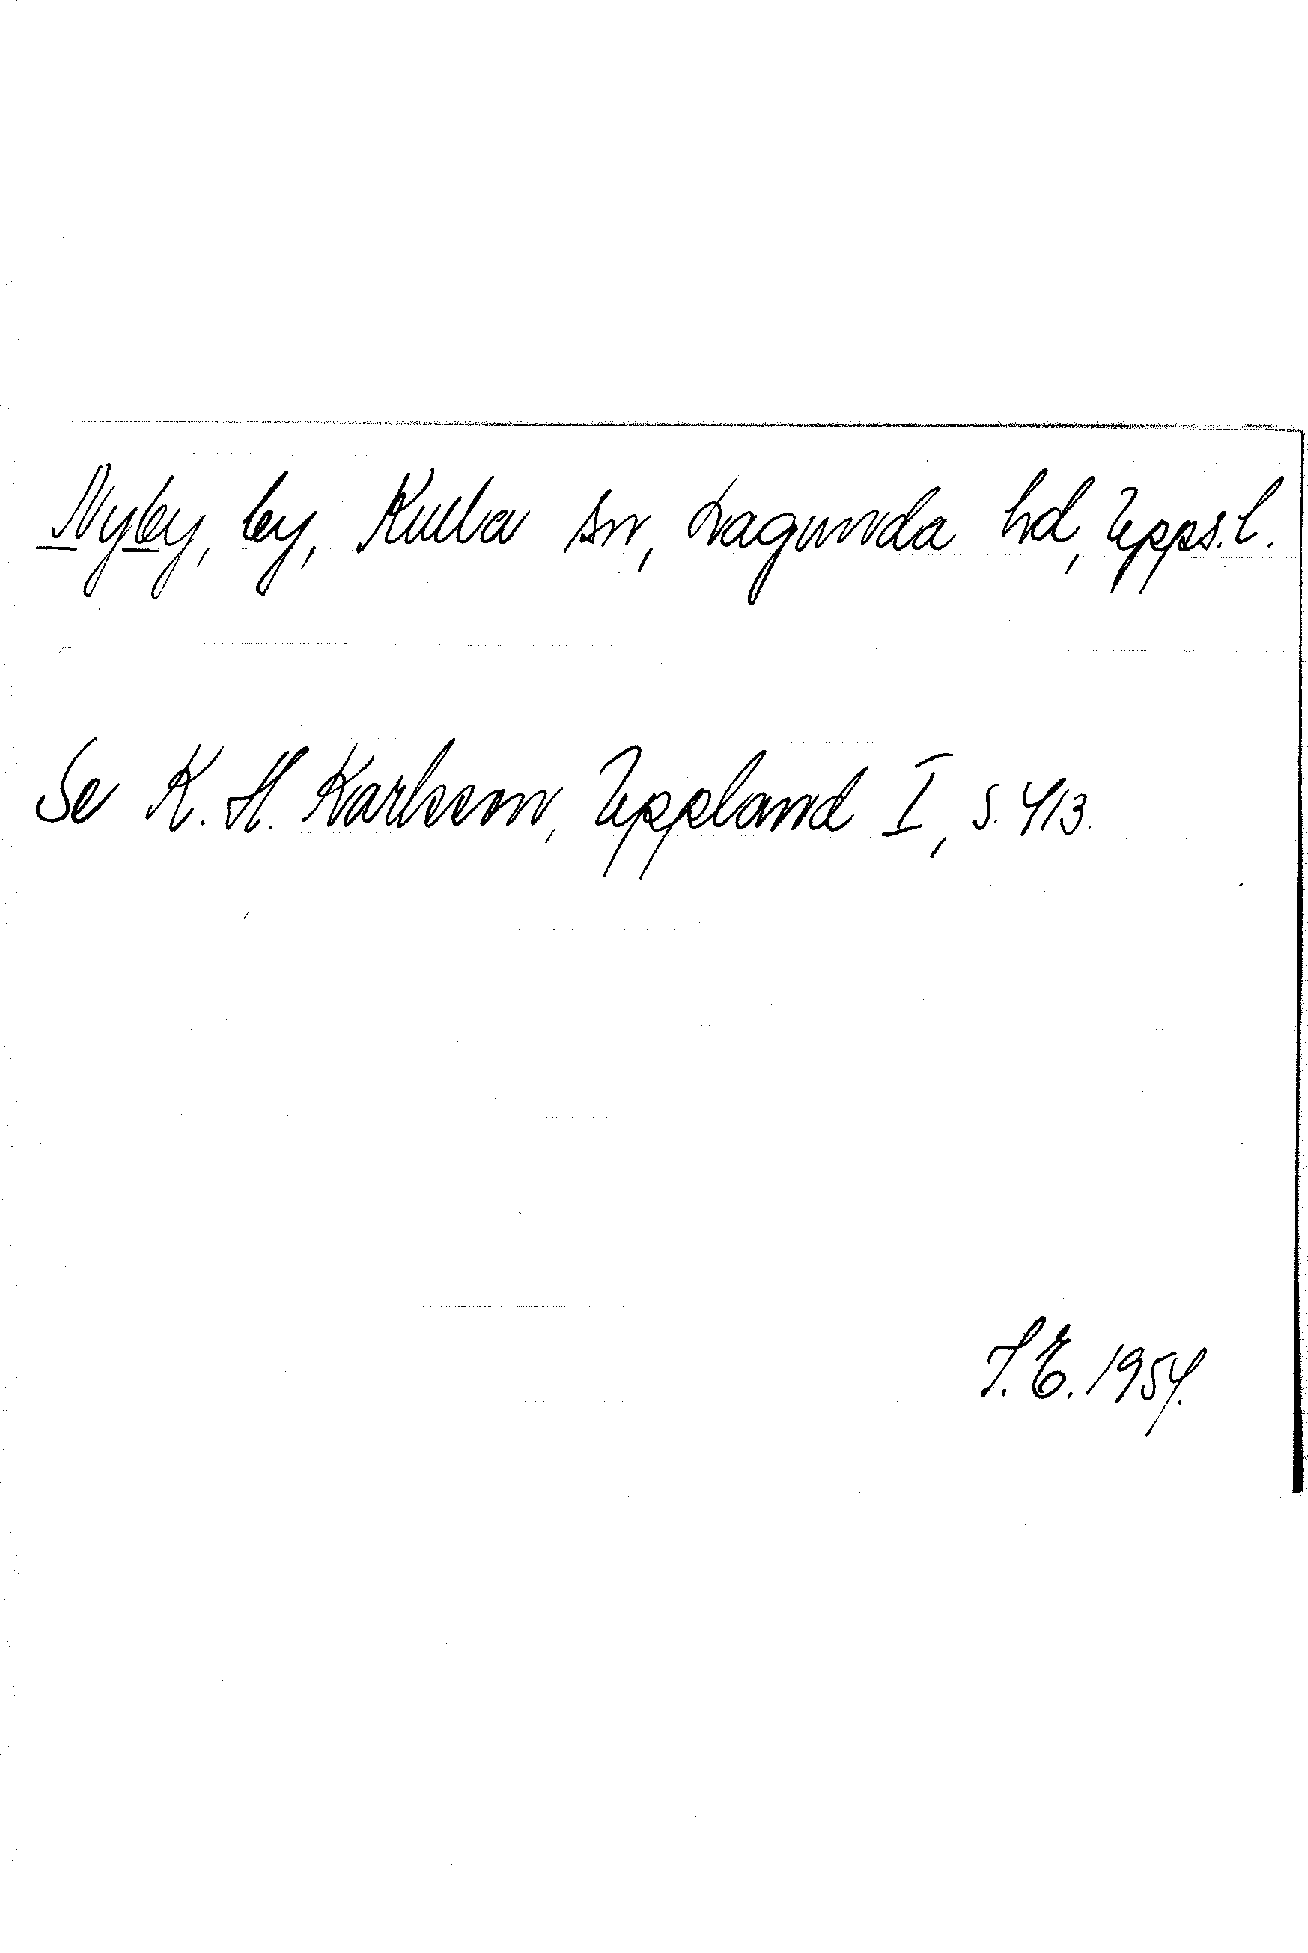 Nyby, by, Kulla sn, Lagunda hd, Upps. l.
Se K. H. Karlsson, Uppland I, s. 413.
J. E. 1954.